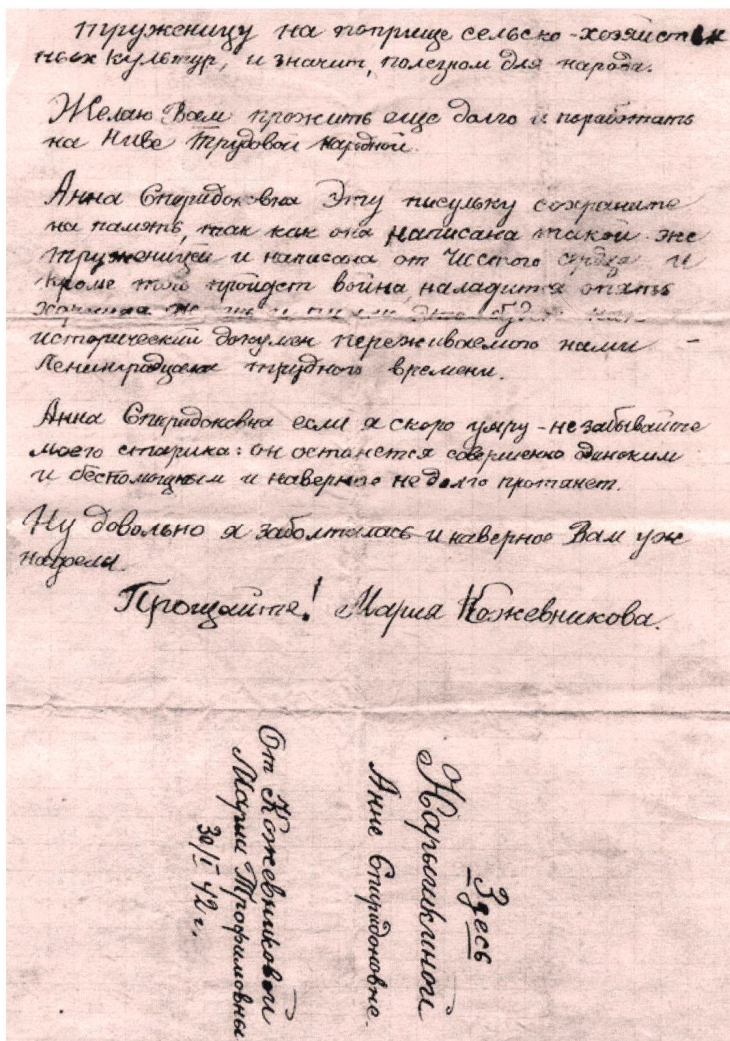 труженицу на поприще сельско-хозяйствен
ных культур, и значит, полезном для народа.
Желаю Вам прожить еще долго и поработать
на Ниве Трудовой народной.
Анна Спиридоновна Эту писульку сохраните
на память, так как она написана такой же
труженицей и написана от чистого сердца и
кроме того пройдет война, наладится опять
хорошая
исторический докумен переживаемого нами –
Ленинградцами трудного времени.
Анна Спиридоновна если я скоро умру – не забывайте
моего старика: он останется совершенно одиноким
и беспомощным и наверное не долго протянет.
Ну довольно я заболталась и наверное Вам уж
надоела.
Прощайте! Мария Кожевникова.
Здесь
Нарышкиной
Анне Спиридоновне.
От Кожевниковой
Марии Трофимовны
30/I 42 г.